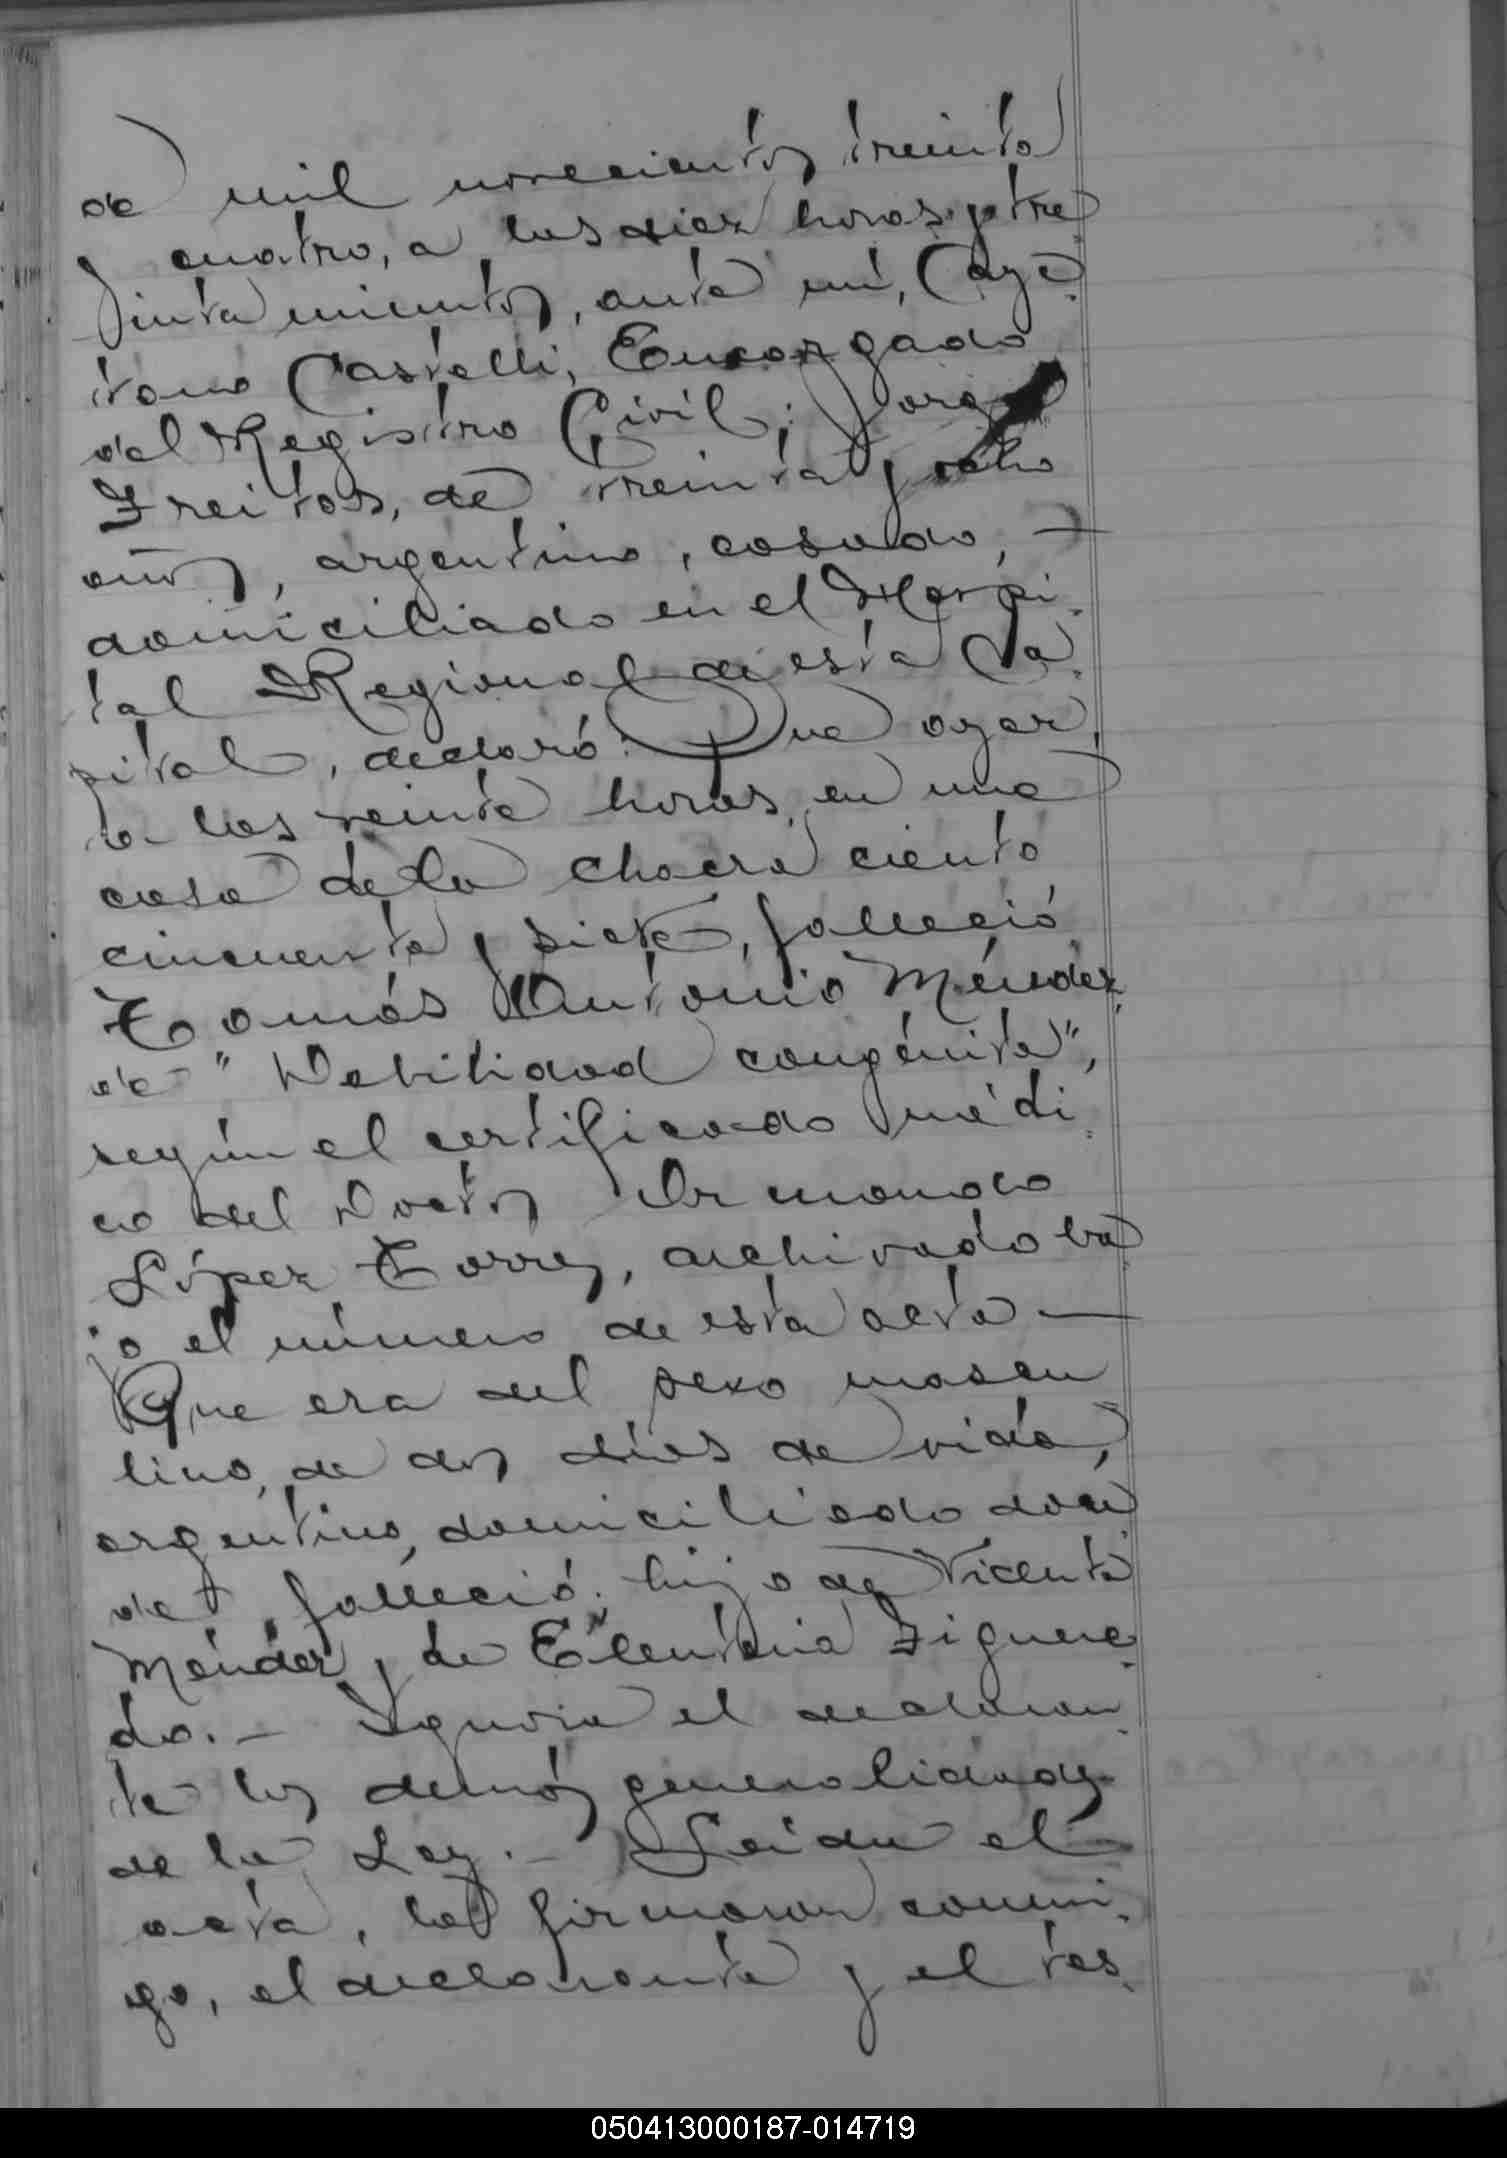 de mil novecientos treinta
y cuatro, a las diez horas y tre
inta minutos, ante mí, Caye
tano Castelli, Encargado
del Registro Civil; Jorge
Freitas, de treinta y ocho
años, argentino, casado, —
domiciliado en el Hospi-
tal Regional de esta Ca-
pital, declaró: Que ayer,
a las veinte horas, en una
casa de la chacra ciento
cincuenta y siete, falleció
Tomás Antonio Méndez,
de "Debilidad congénita",
según el certificado médi-
co del Doctor Armando
López Torres, archivado ba
jo el número de esta acta —
Que era del sexo mascu
lino, de dos días de vida,
argentino, domiciliado don
de falleció: hijo de Vicente
Méndez y de Eleuteria Figuere-
do. — Ignora el declaran-
te las demás generalidades
de la Ley. — Leída el
acta, la firmaron conmi-
go, el declarante y el tes-
050413000187-014719